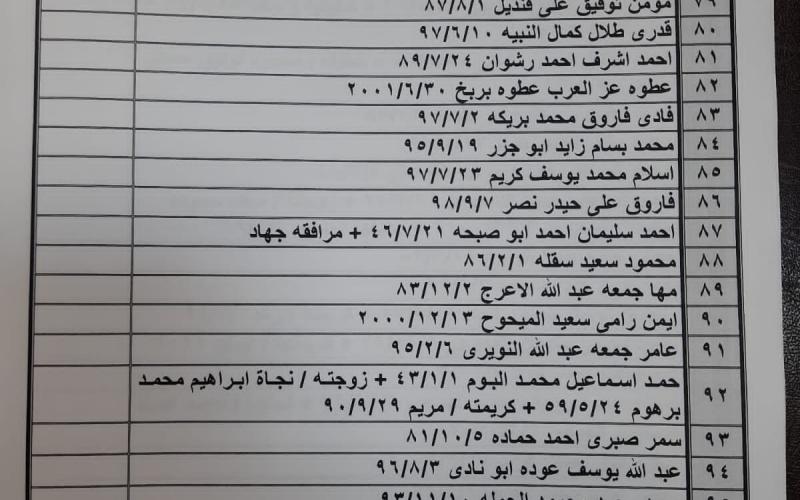 ٧٩ مؤمن توفيق على قنديل ٨٧/٨/١
٨٠ قدرى طلال كمال النبيه ٩٧/٦/١٠
٨١ احمد اشرف احمد رشوان ٨٩/٧/٢٤
٨٢ عطوه عز العرب عطوه بربخ ٢٠٠١/٦/٣٠
٨٣ فادى فاروق محمد بريكه ٩٧/٧/٢
٨٤ محمد بسام زايد ابو جزر ٩٥/٩/١٩
٨٥ اسلام محمد يوسف كريم ٩٧/٧/٢٣
٨٦ فاروق على حيدر نصر ٩٨/٩/٧
٨٧ احمد سليمان احمد ابو صبحه ٤٦/٧/٢١ + مرافقه جهاد
٨٨ محمود سعيد سقله ٨٦/٢/١
٨٩ مها جمعه عبد الله الاعرج ٨٣/١٢/٢
٩٠ ايمن رامى سعيد الميحوح ٢٠٠٠/١٢/١٣
٩١ عامر جمعه عبد الله النويرى ٩٥/٢/٦
٩٢ حمد اسماعيل محمد البوم ٤٣/١/١ + زوجته / نجاة ابراهيم محمد
برهوم ٥٩/٥/٢٤ + كريمته / مريم ٩٠/٩/٢٩
٩٣ سمر صبرى احمد حماده ٨١/١٠/٥
٩٤ عبد الله يوسف عوده ابو نادى ٩٦/٨/٣